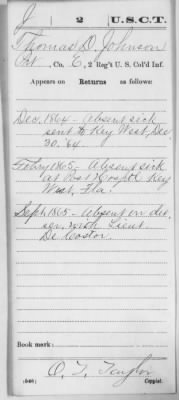 J 2 U.S.C.T.
Thomas D. Johnson
Pvt, Co. E, 2 Reg't U. S. Col'd Inf.
Appears on Returns as follows:
Dec. 1864 - Absent sick
sent to Key West, Dec
30. '64.
Febry 1865 - Absent sick
at Post Hosptl Key
West, Fla.
Sept. 1865 - Absent on det.
ser. with Lieut.
De Coster.
Book mark:
O. T. Taylor
(546) Copyist.